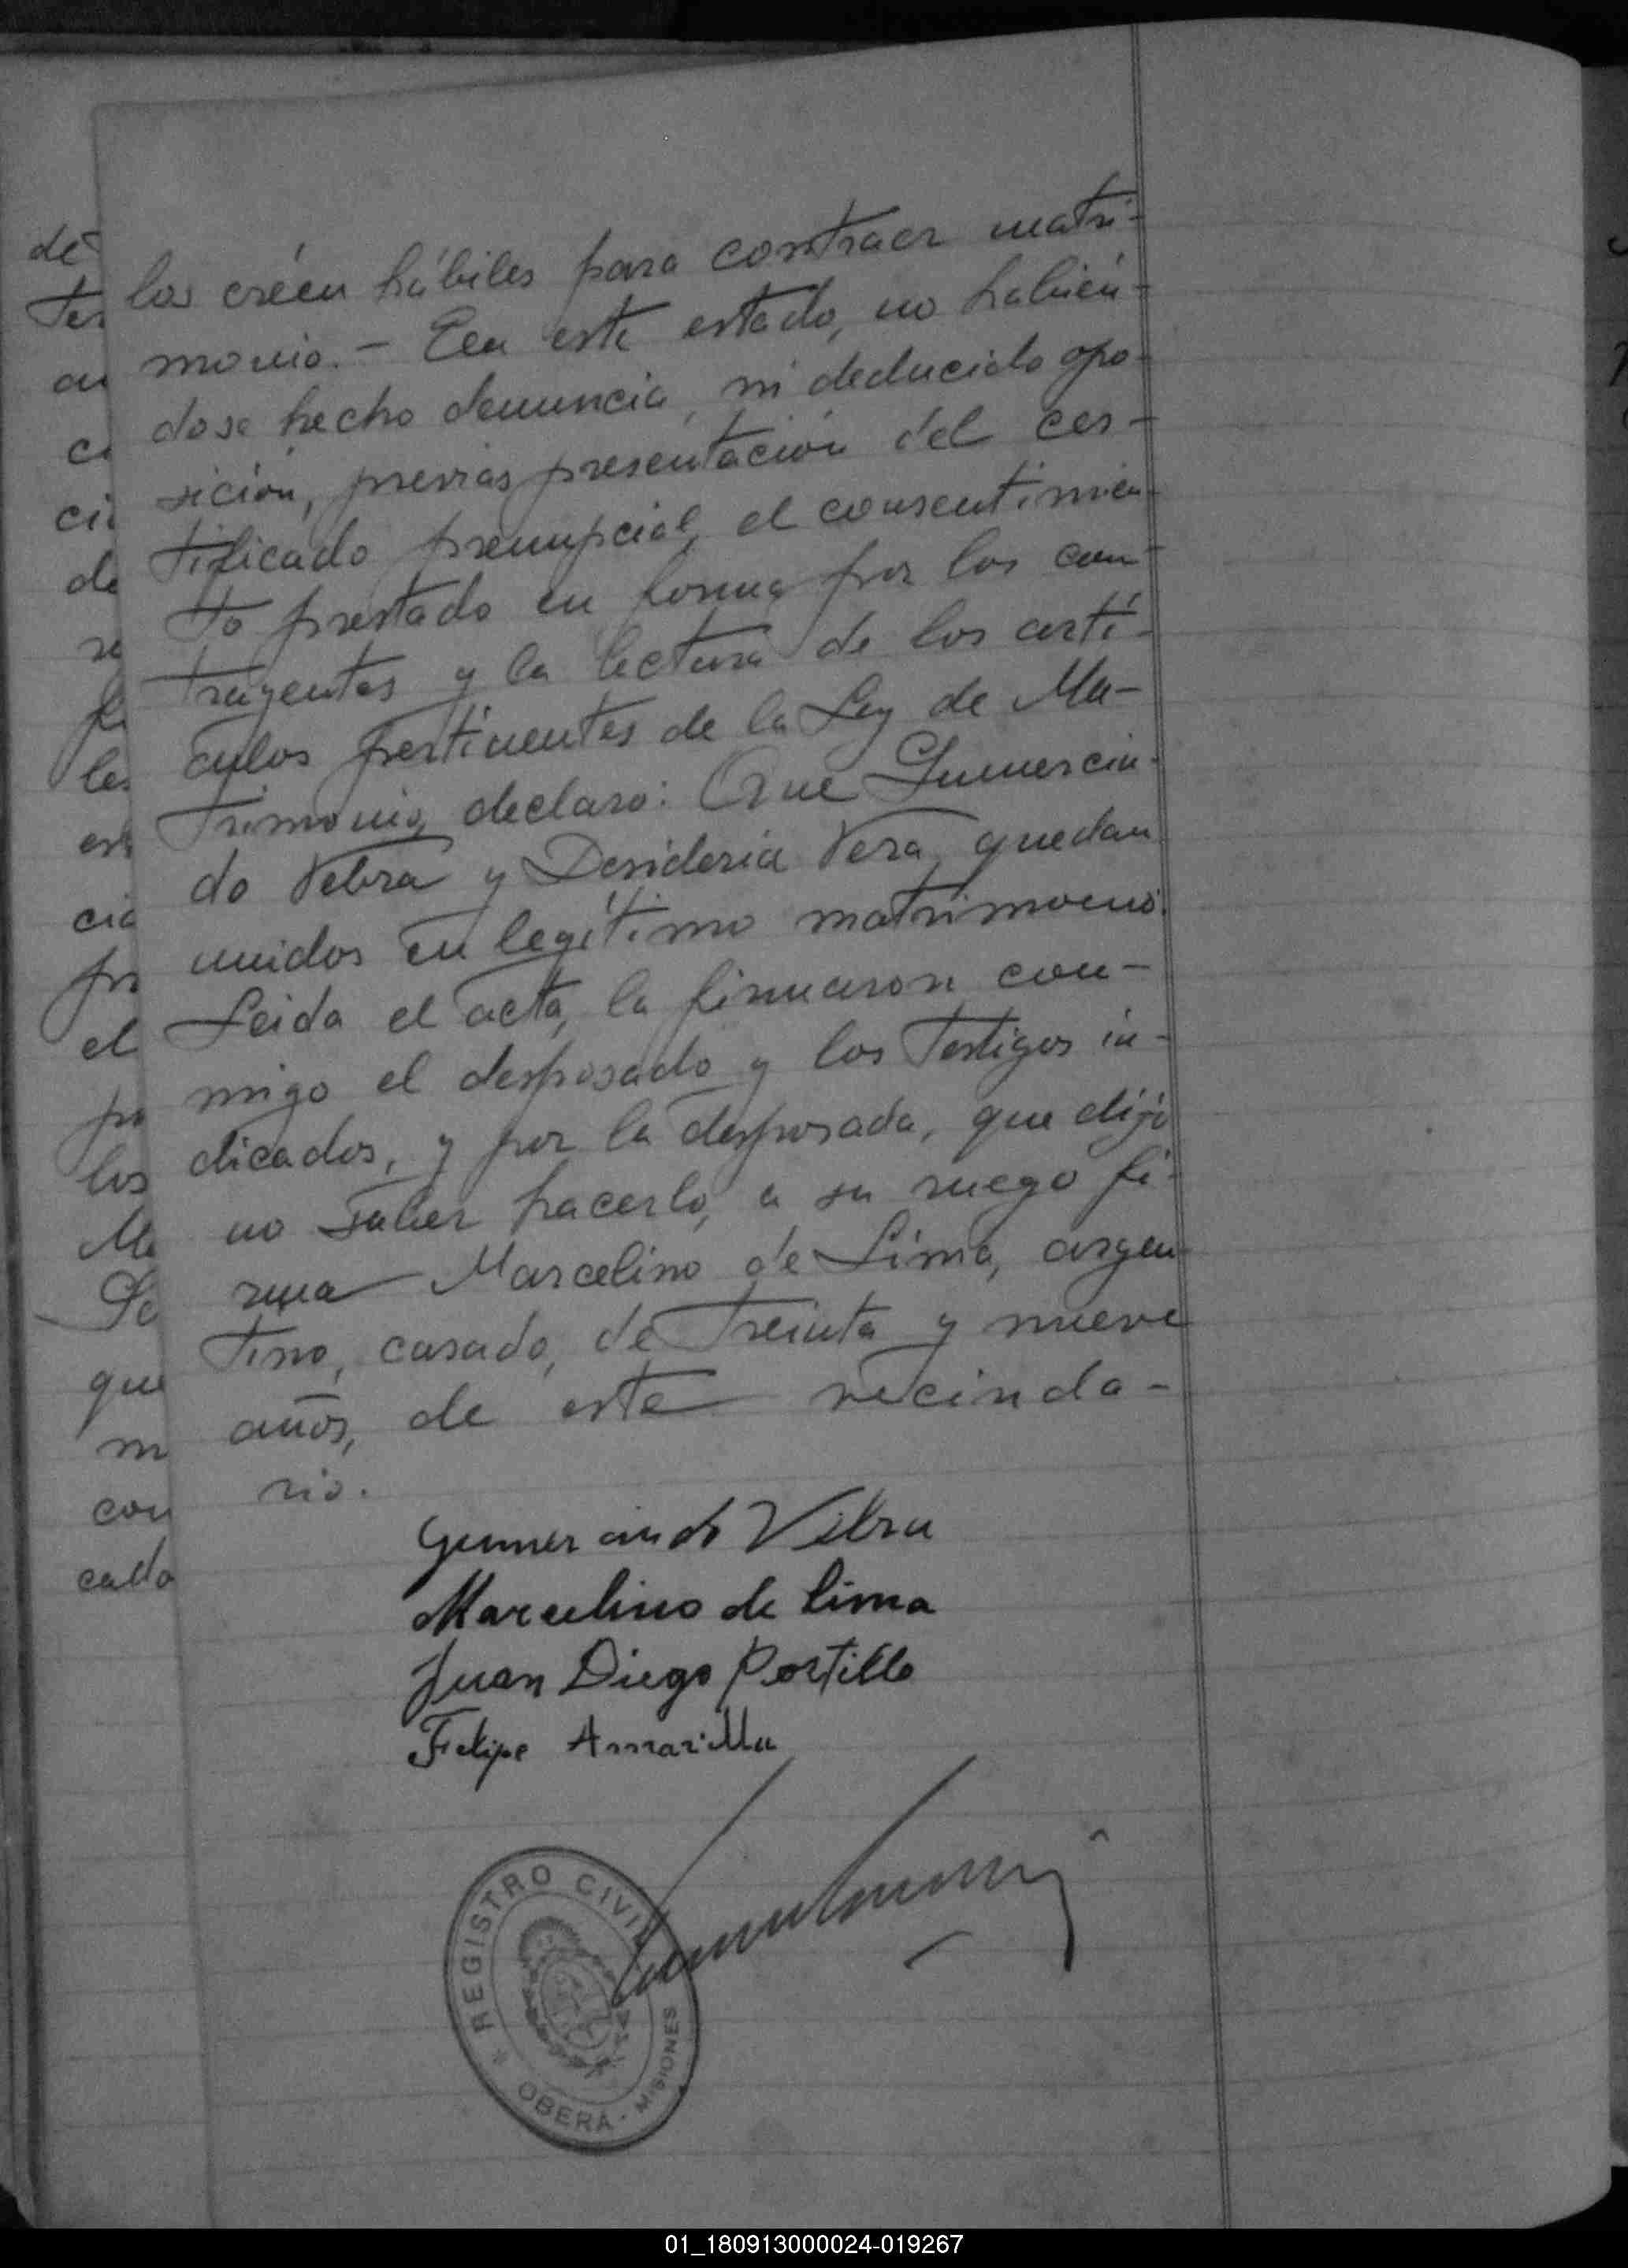 los créen hábiles para contraer matri-
monio.- En este estado, no habién-
dose hecho denuncia, ni deducido opo-
sición, previas presentación del cer-
tificado prenupcial, el consentimien-
to prestado en forma por los con-
trayentes y la lectura de los artí-
culos pertinentes de la Ley de Ma-
trimonio, declaro: Que Gumercin-
do Vebra y Desideria Vera, quedan
unidos en legítimo matrimonio.
Leida el acta, la firmaron con-
migo el desposado y los testigos in-
dicados, y por la desposada, que dijo
no saber hacerlo, a su ruego fi-
rma Marcelino de Lima, argen-
tino, casado, de treinta y nueve
años, de este vecinda-
rio.
Gumercindo Vebra
Marcelino de Lima
Juan Diego Portillo
Felipe Amarilla
REGISTRO CIVIL
OBERÁ - MISIONES
det
ter
an
ci
de
les
cia
el
los
que
m
con
01_180913000024-019267